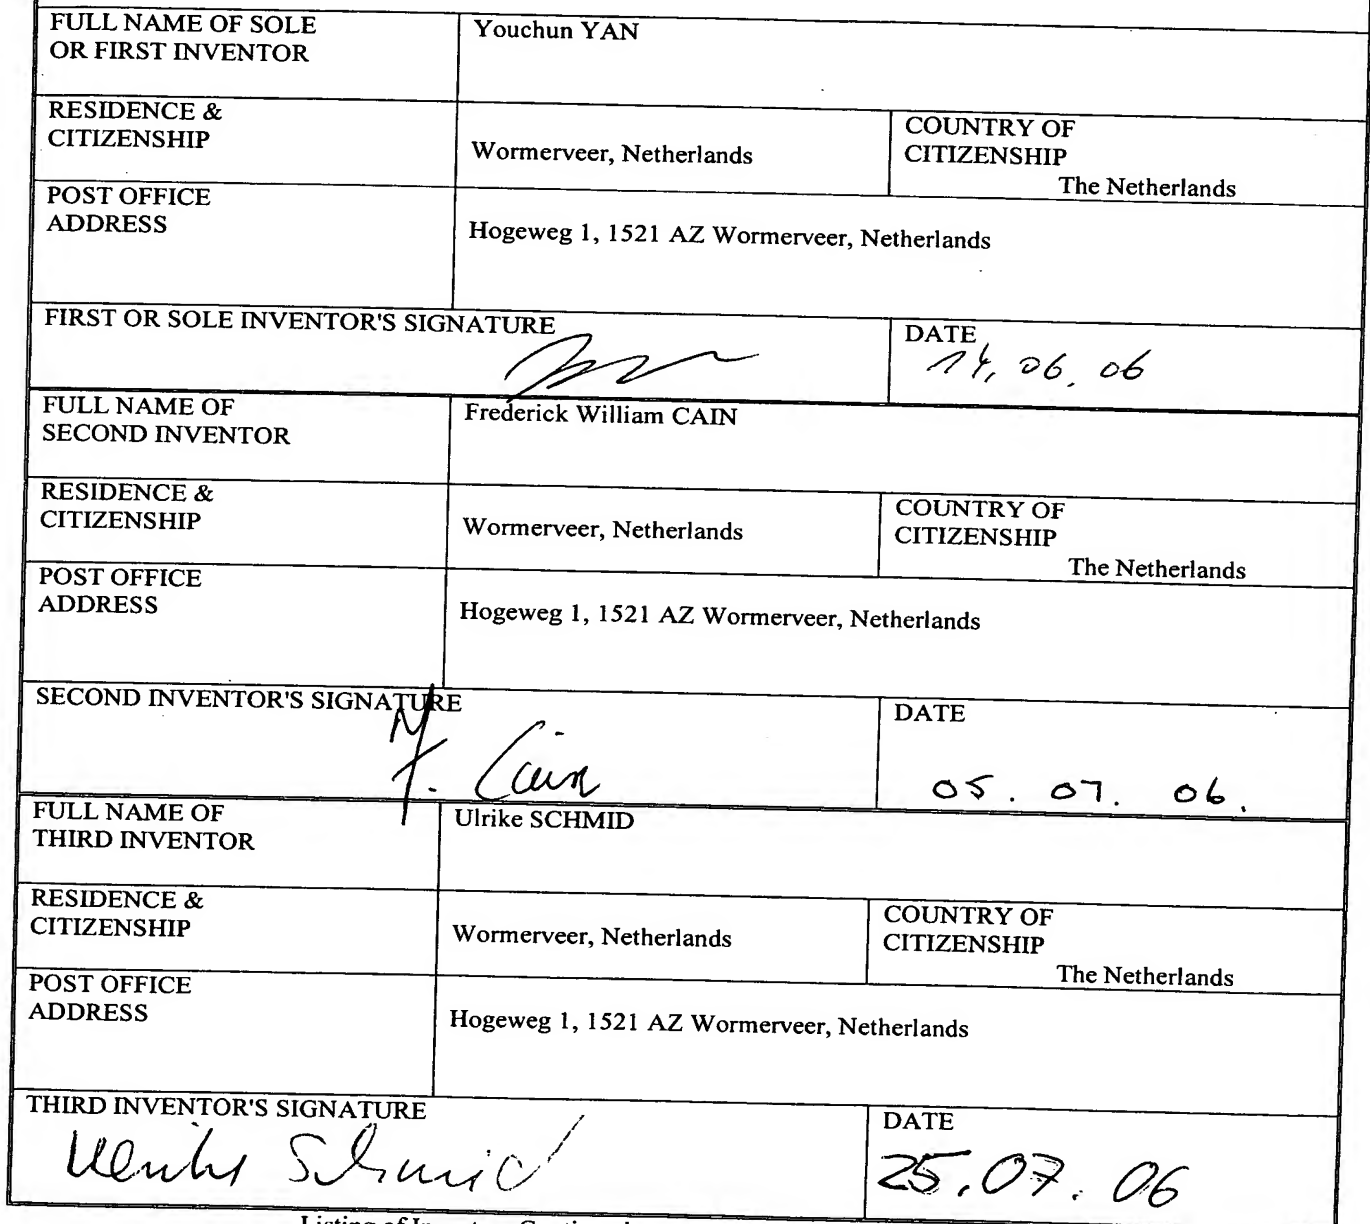 FULL NAME OF SOLE
OR FIRST INVENTOR
Youchun YAN
RESIDENCE &
CITIZENSHIP
Wormerveer, Netherlands
COUNTRY OF
CITIZENSHIP
The Netherlands
POST OFFICE
ADDRESS
Hogeweg 1, 1521 AZ Wormerveer, Netherlands
FIRST OR SOLE INVENTOR'S SIGNATURE
DATE
14, 06. 06
FULL NAME OF
SECOND INVENTOR
Frederick William CAIN
RESIDENCE &
CITIZENSHIP
Wormerveer, Netherlands
COUNTRY OF
CITIZENSHIP
The Netherlands
POST OFFICE
ADDRESS
Hogeweg 1, 1521 AZ Wormerveer, Netherlands
SECOND INVENTOR'S SIGNATURE
Cain
DATE
05. 07. 06.
FULL NAME OF
THIRD INVENTOR
Ulrike SCHMID
RESIDENCE &
CITIZENSHIP
Wormerveer, Netherlands
COUNTRY OF
CITIZENSHIP
The Netherlands
POST OFFICE
ADDRESS
Hogeweg 1, 1521 AZ Wormerveer, Netherlands
THIRD INVENTOR'S SIGNATURE
Ulrike Schmid
DATE
25.07.06
Listing of Inventors Continued